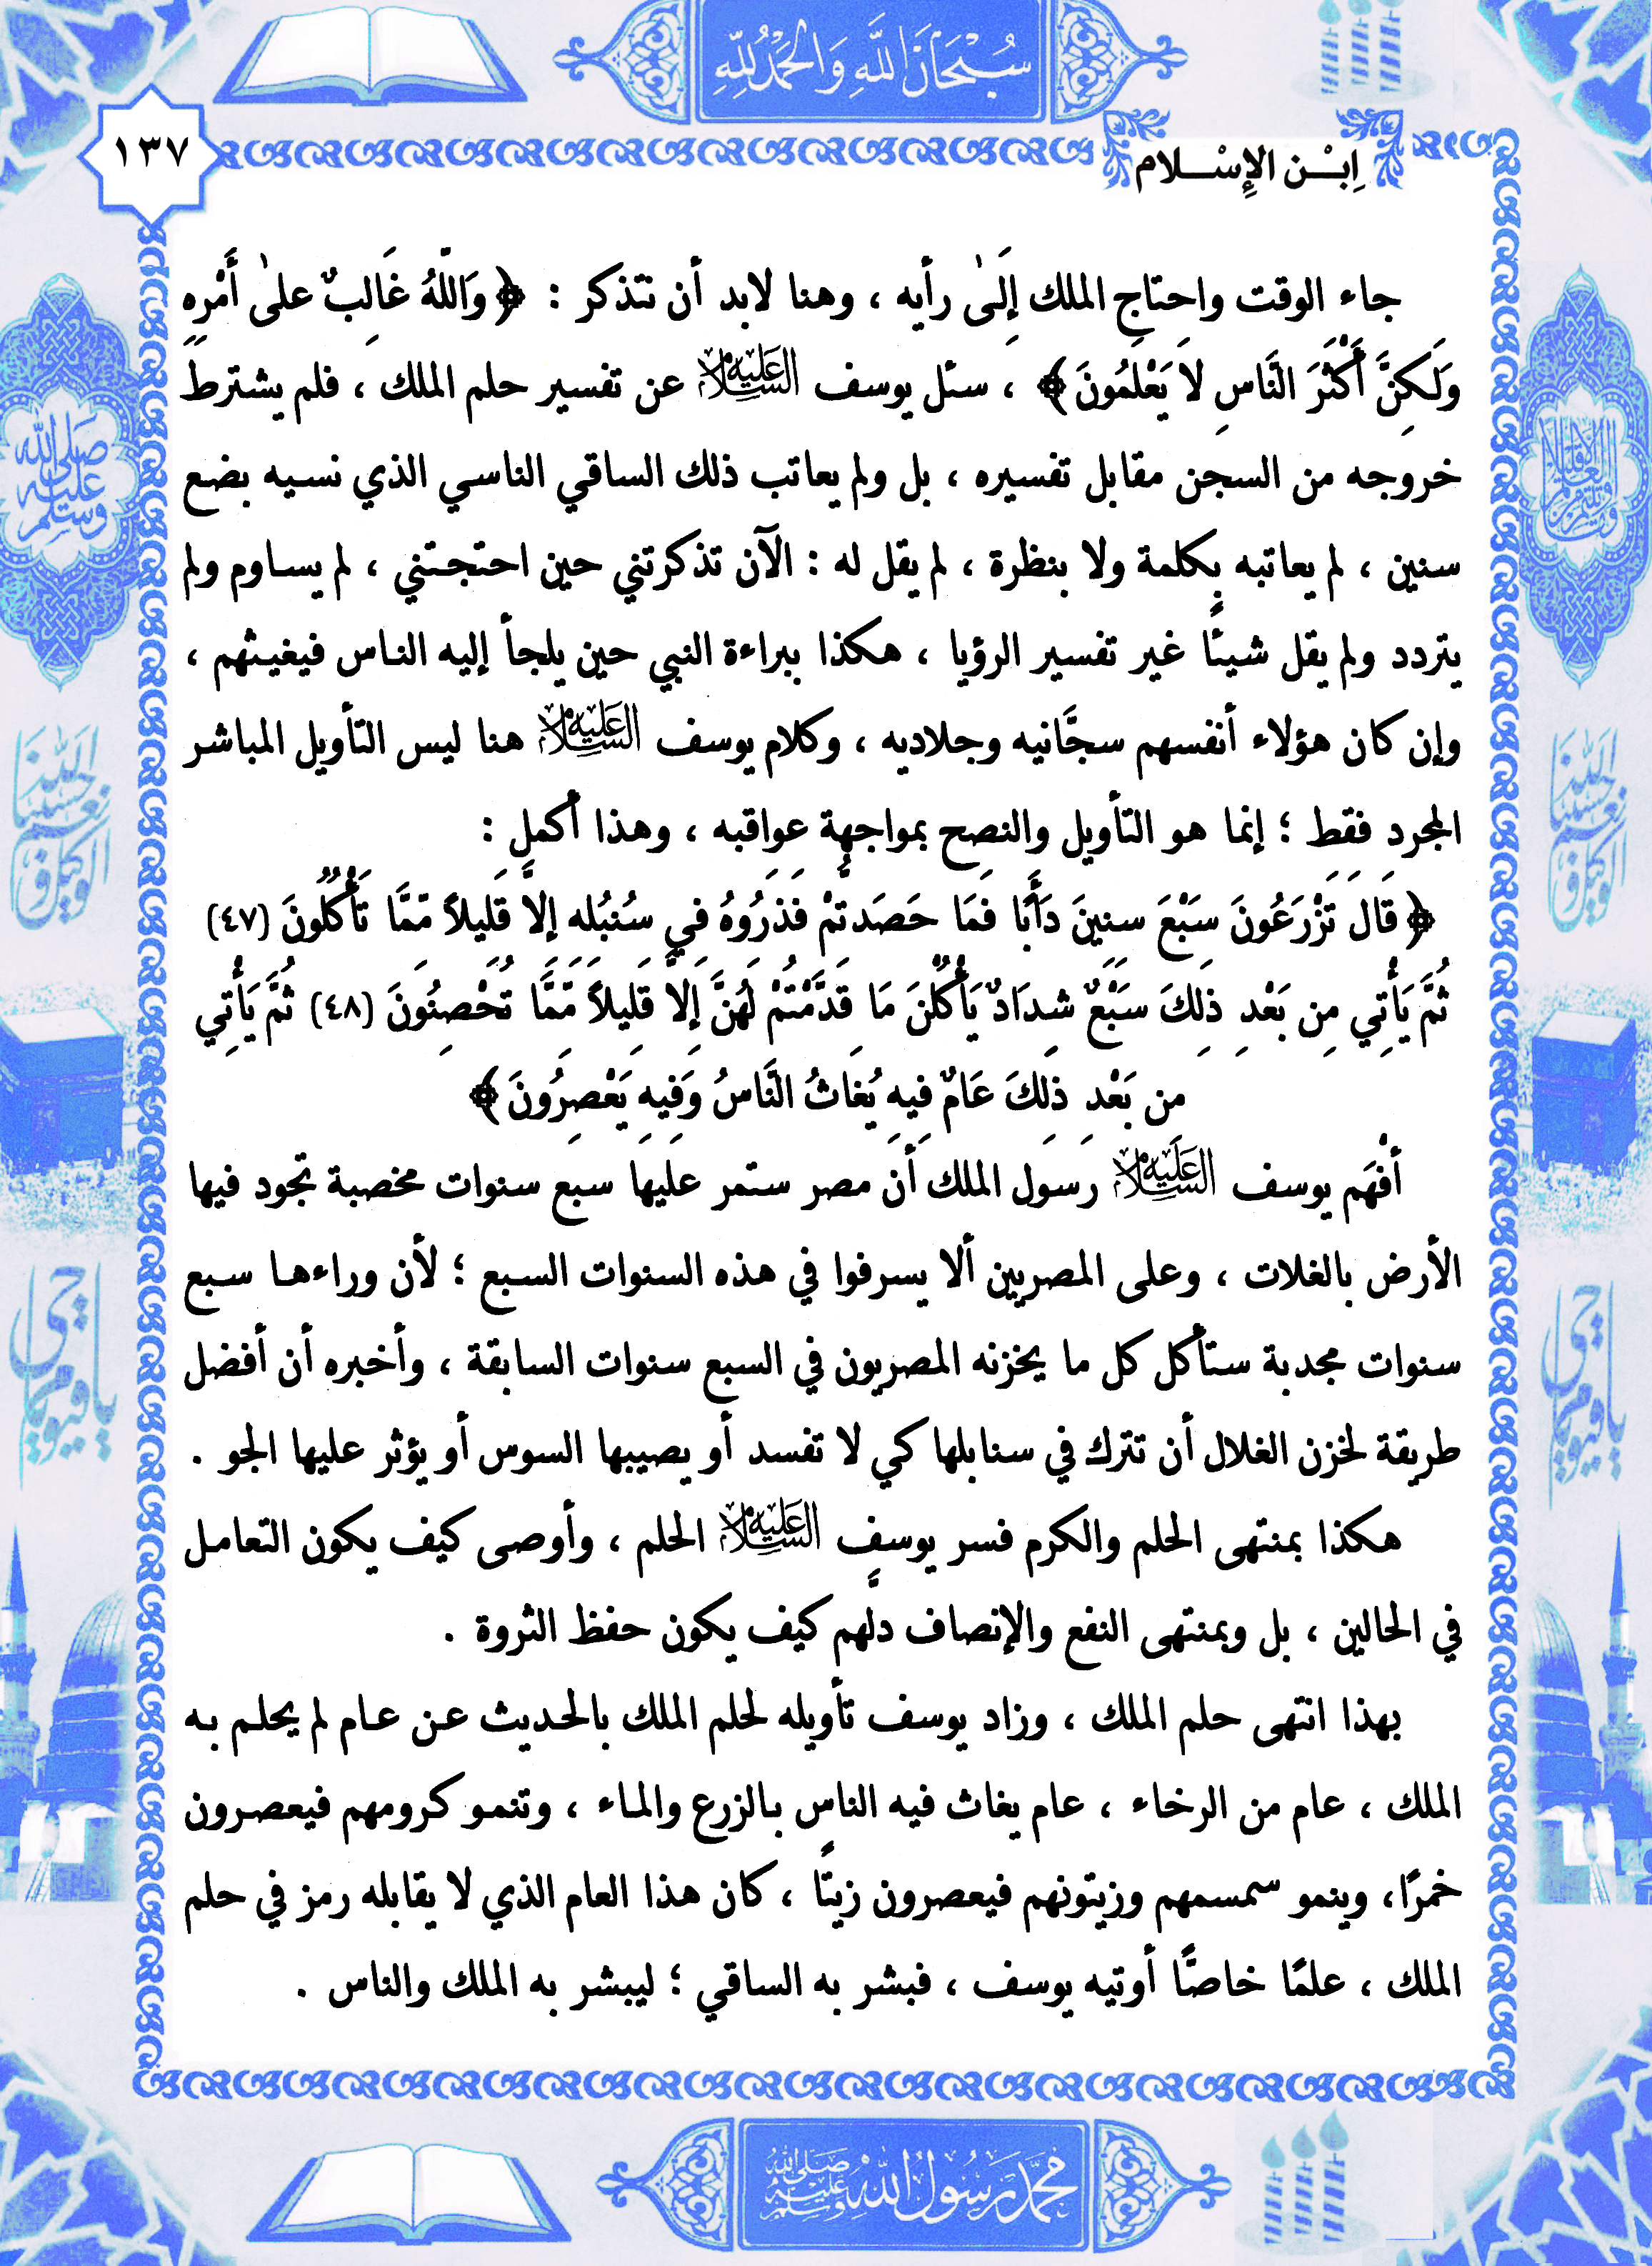 سُبْحَانَ اللَّهِ وَالْحَمْدُ لِلَّهِ
١٣٧
اِبْـن الإِسْـلام
جاء الوقت واحتاج الملك إِلَىٰ رأيه ، وهنا لابد أن نتذكر : ﴿ وَاللَّهُ غَالِبٌ علىٰ أَمْرِهِ
وَلَكِنَّ أَكْثَرَ النَّاسِ لا يَعْلَمُونَ ﴾ ، سئل يوسف عَلَيْهِ السَّلَام عن تفسير حلم الملك ، فلم يشترط
خروجه من السجن مقابل تفسيره ، بل ولم يعاتب ذلك الساقي الناسي الذي نسيه بضع
سنين ، لم يعاتبه بكلمة ولا بنظرة ، لم يقل له : الآن تذكرتني حين احتجتني ، لم يساوم ولم
يتردد ولم يقل شيئًا غير تفسير الرؤيا ، هكذا ببراءة النبي حين يلجأ إليه الناس فيغيثهم ،
وإن كان هؤلاء أنفسهم سجَّانيه وجلاديه ، وكلام يوسف عَلَيْهِ السَّلَام هنا ليس التأويل المباشر
المجرد فقط ؛ إنما هو التأويل والنصح بمواجهة عواقبه ، وهذا أكمل :
﴿ قَالَ تَزْرَعُونَ سَبْعَ سِنِينَ دَأَبًا فَمَا حَصَدتُّمْ فَذَرُوهُ فِي سُنبُلِهِ إِلاَّ قَلِيلاً مِّمَّا تَأْكُلُونَ (٤٧)
ثُمَّ يَأْتِي مِن بَعْدِ ذَلِكَ سَبْعٌ شِدَادٌ يَأْكُلْنَ مَا قَدَّمْتُمْ لَهُنَّ إِلاَّ قَلِيلاً مِّمَّا تُحْصِنُونَ (٤٨) ثُمَّ يَأْتِي
مِن بَعْدِ ذَلِكَ عَامٌ فِيهِ يُغَاثُ النَّاسُ وَفِيهِ يَعْصِرُونَ ﴾
أفْهَم يوسف عَلَيْهِ السَّلَام رسول الملك أن مصر ستمر عليها سبع سنوات مخصبة تجود فيها
الأرض بالغلات ، وعلى المصريين ألا يسرفوا في هذه السنوات السبع ؛ لأن وراءها سبع
سنوات مجدبة ستأكل كل ما يخزنه المصريون في السبع سنوات السابقة ، وأخبره أن أفضل
طريقة لخزن الغلال أن تترك في سنابلها كي لا تفسد أو يصيبها السوس أو يؤثر عليها الجو .
هكذا بمنتهى الحلم والكرم فسر يوسف عَلَيْهِ السَّلَام الحلم ، وأوصى كيف يكون التعامل
في الحالين ، بل وبمنتهى النفع والإنصاف دلَّهم كيف يكون حفظ الثروة .
بهذا انتهى حلم الملك ، وزاد يوسف تأويله لحلم الملك بالحديث عن عام لم يحلم به
الملك ، عام من الرخاء ، عام يغاث فيه الناس بالزرع والماء ، وتنمو كرومهم فيعصرون
خمرًا، وينمو سمسمهم وزيتونهم فيعصرون زيتًا ، كان هذا العام الذي لا يقابله رمز في حلم
الملك ، علمًا خاصًّا أوتيه يوسف ، فبشر به الساقي ؛ ليبشر به الملك والناس .
صلى الله عليه وسلم
مُحَمَّد رَسُولُ اللَّهِ صلى الله عليه وسلم